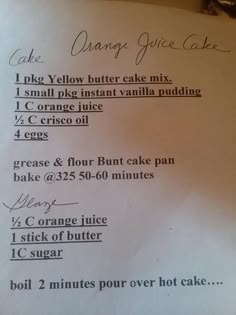 Orange Juice Cake
Cake
1 pkg Yellow butter cake mix.
1 small pkg instant vanilla pudding
1 C orange juice
½ C crisco oil
4 eggs
grease & flour Bunt cake pan
bake @325 50-60 minutes
Glaze
½ C orange juice
1 stick of butter
1C sugar
boil 2 minutes pour over hot cake….